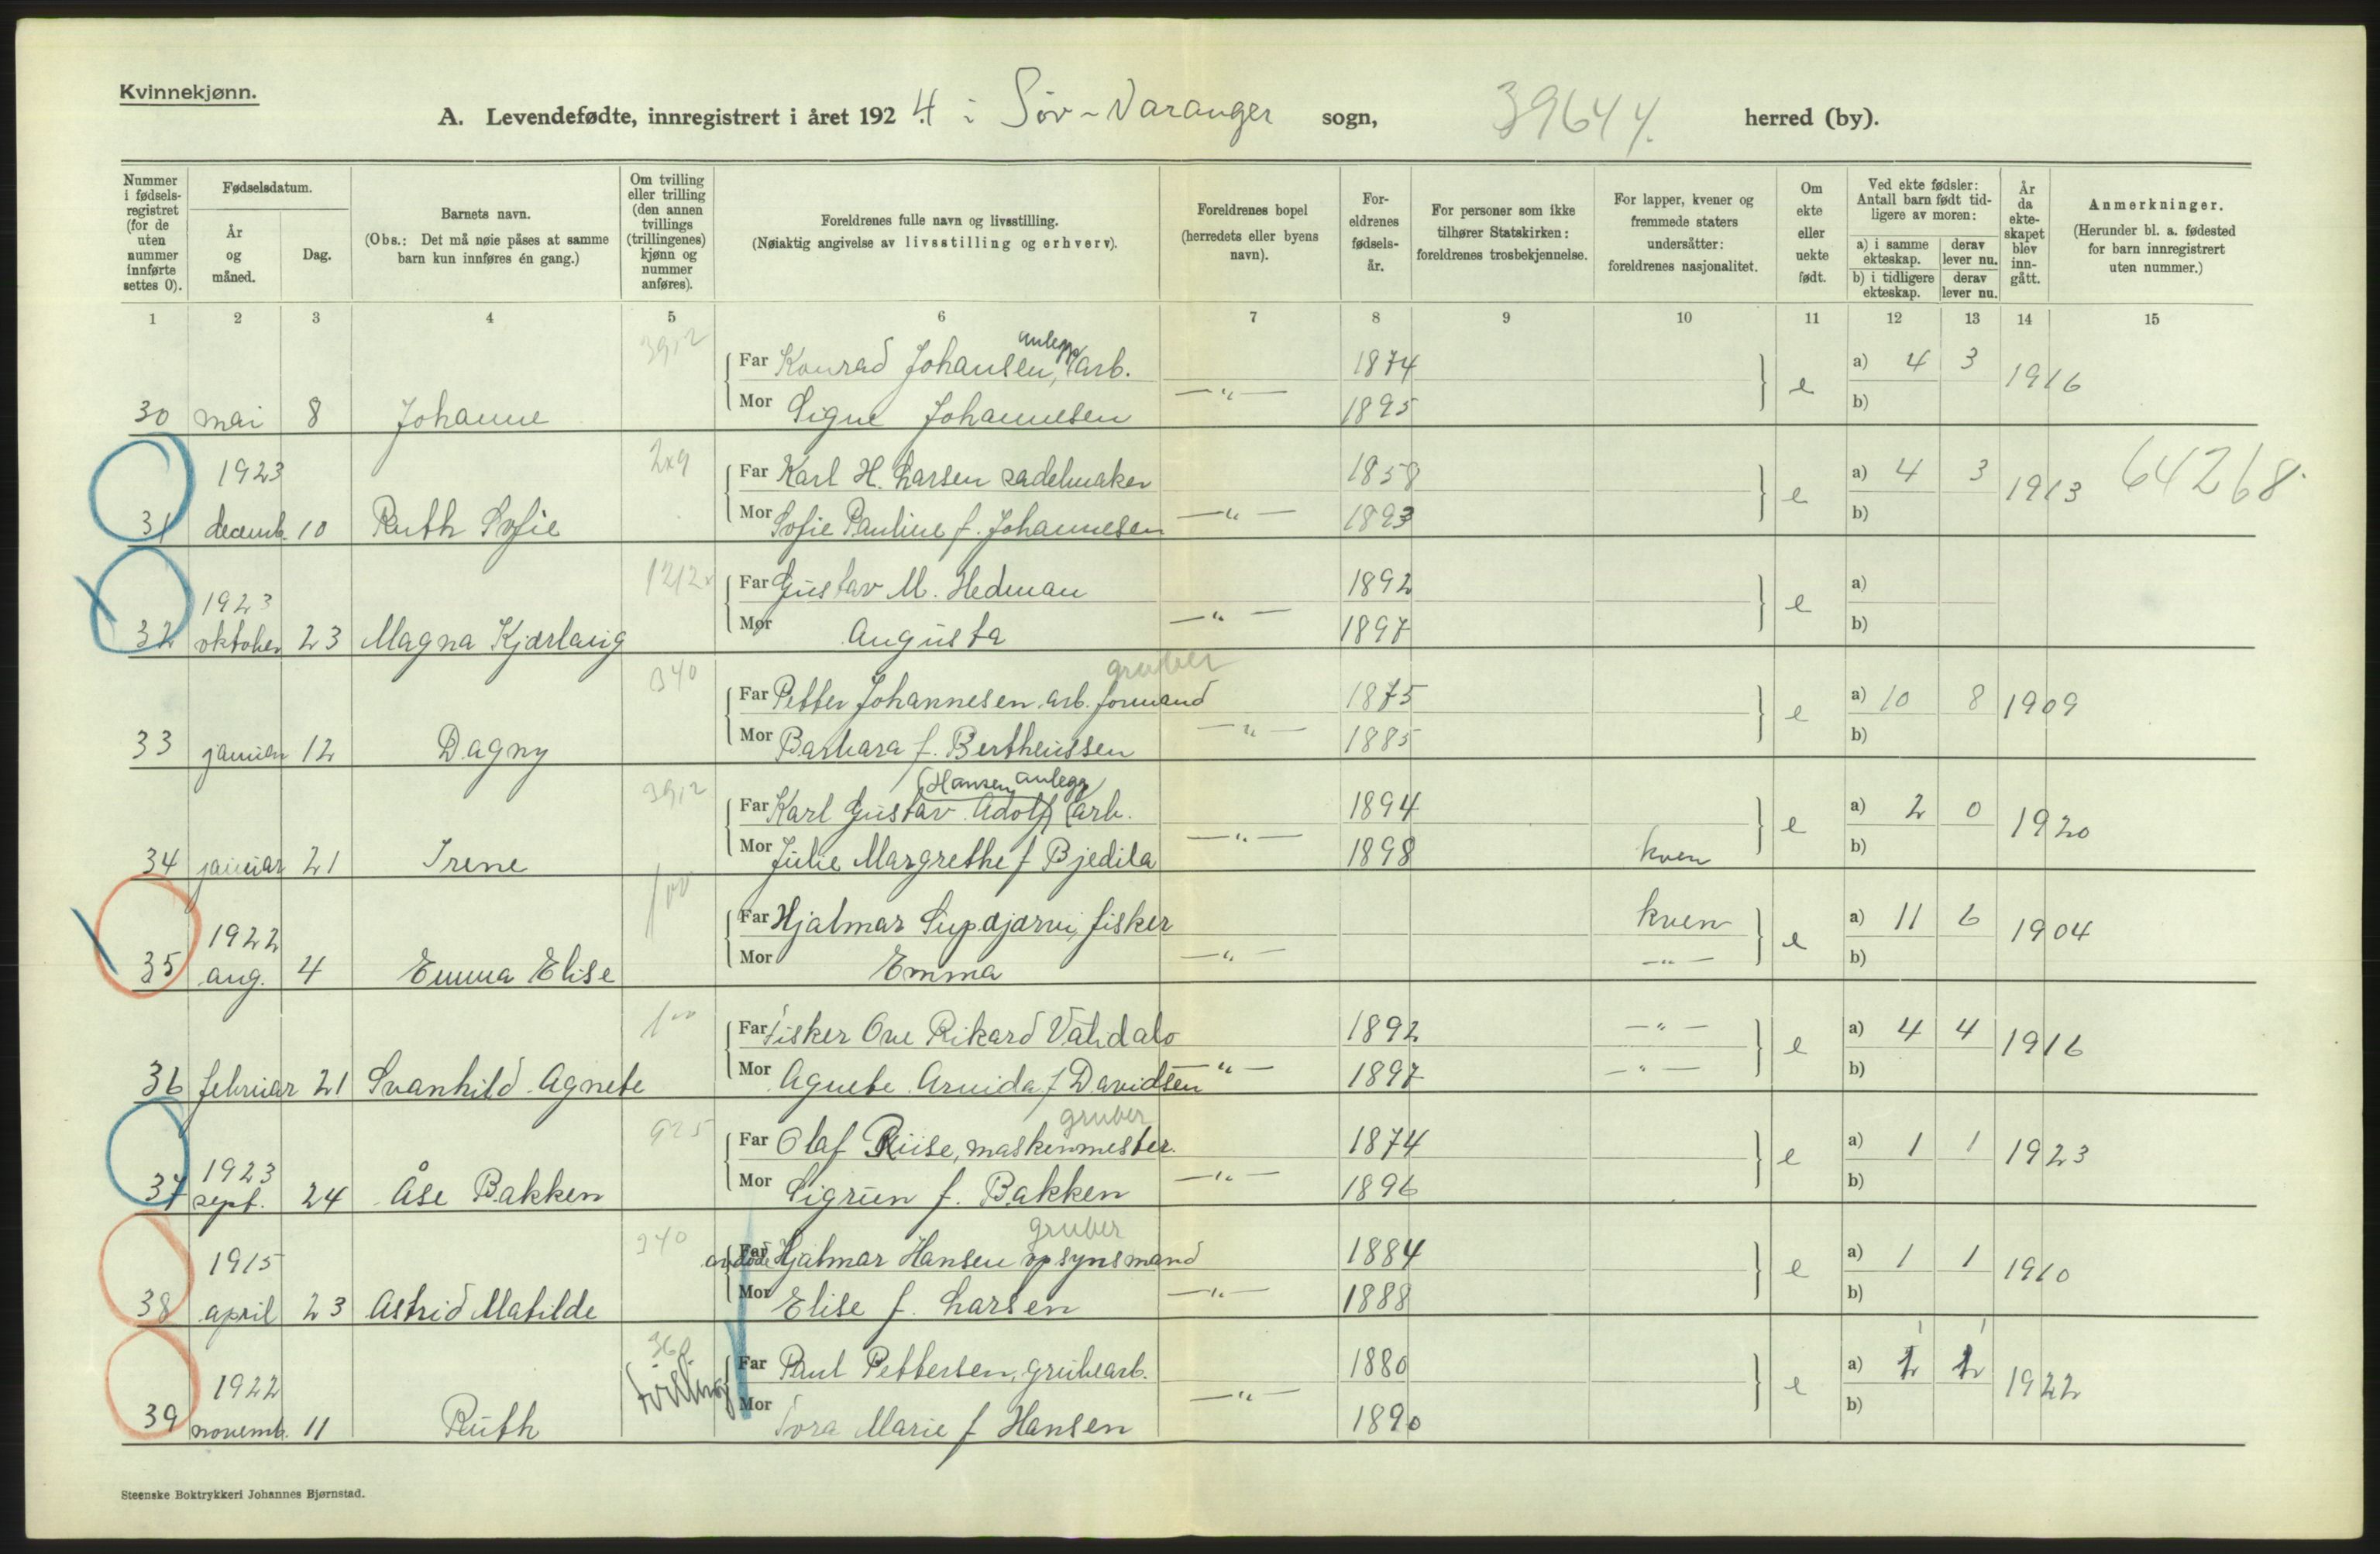 Kvinnekjønn.
A. Levendefødte, innregistrert i året 1924 i Sør-Varanger sogn, 39644. herred (by).
Nummer i fødselsregistret (for de uten nummer innførte settes 0).
Fødselsdatum.
År og måned.
Dag.
Barnets navn.
(Obs.: Det må nøie påses at samme barn kun innføres én gang.)
Om tvilling eller trilling (den annen tvillings (trillingenes) kjønn og nummer anføres).
Foreldrenes fulle navn og livsstilling.
(Nøiaktig angivelse av livsstilling og erhverv).
Foreldrenes bopel (herredets eller byens navn).
Foreldrenes fødselsår.
For personer som ikke tilhører Statskirken: foreldrenes trosbekjennelse.
For lapper, kvener og fremmede staters undersåtter: foreldrenes nasjonalitet.
Om ekte eller uekte født.
Ved ekte fødsler: Antall barn født tidligere av moren:
a) i samme ekteskap. derav lever nu.
b) i tidligere ekteskap. derav lever nu.
År da ekteskapet blev inngått.
Anmerkninger.
(Herunder bl. a. fødested for barn innregistrert uten nummer.)
1 2 3 4 5 6 7 8 9 10 11 12 13 14 15
3912 anlegg
Far Konrad Johansen, arb. 1874 a) 4 3
30 mai 8 Johanne Mor Signe Johannesen —"— 1895 e b) 1916
1923 2x9 Far Karl H. Larsen sadelmaker 1858 a) 4 3
31 decemb. 10 Ruth Sofie Mor Sofie Pauline f. Johannesen —"— 1893 e b) 1913 64268.
1923 1212x Far Gustav M. Hedman 1892 a)
32 oktober 23 Magna Kjærlaug Mor Augusta —"— 1897 e b)
340 gruber
Far Petter Johannesen arb. formand 1875 a) 10 8
33 januar 12 Dagny Mor Barbara f. Bertheussen —"— 1885 e b) 1909
3912 (Hansen anlegg
Far Karl Gustav Adolf (arb. 1894 a) 2 0
34 januar 21 Irene Mor Julie Margrethe f Bjedila —"— 1898 kven e b) 1920
1922 100 Far Hjalmar fisker kven a) 11 6
35 aug. 4 Emma Elise Mor Emma —"— —"— e b) 1904
100 Far Fisker Ove Rikard Validalo 1892 —"— a) 4 4
36 februar 21 Svanhild Agnete Mor Agnete Arnida f Davidsen —"— 1897 —"— e b) 1916
925 gruber
1923 Far Olaf Riise, maskinmester. 1874 a) 1 1
37 sept. 24 Åse Bakken Mor Sigrun f. Bakken —"— 1896 e b) 1923
340 gruber
1915 Far Hjalmar Hansen opsynsmand 1884 a) 1 1
38 april 23 Astrid Matilde Mor Elise f. Larsen —"— 1888 e b) 1910
1922 360 tvilling Far Paul Pettersen, grubearb. 1880 a) 1 1
39 novemb. 11 Ruth Mor Tora Marie f Hansen —"— 1890 e b) 1922
Steenske Boktrykkeri Johannes Bjørnstad.